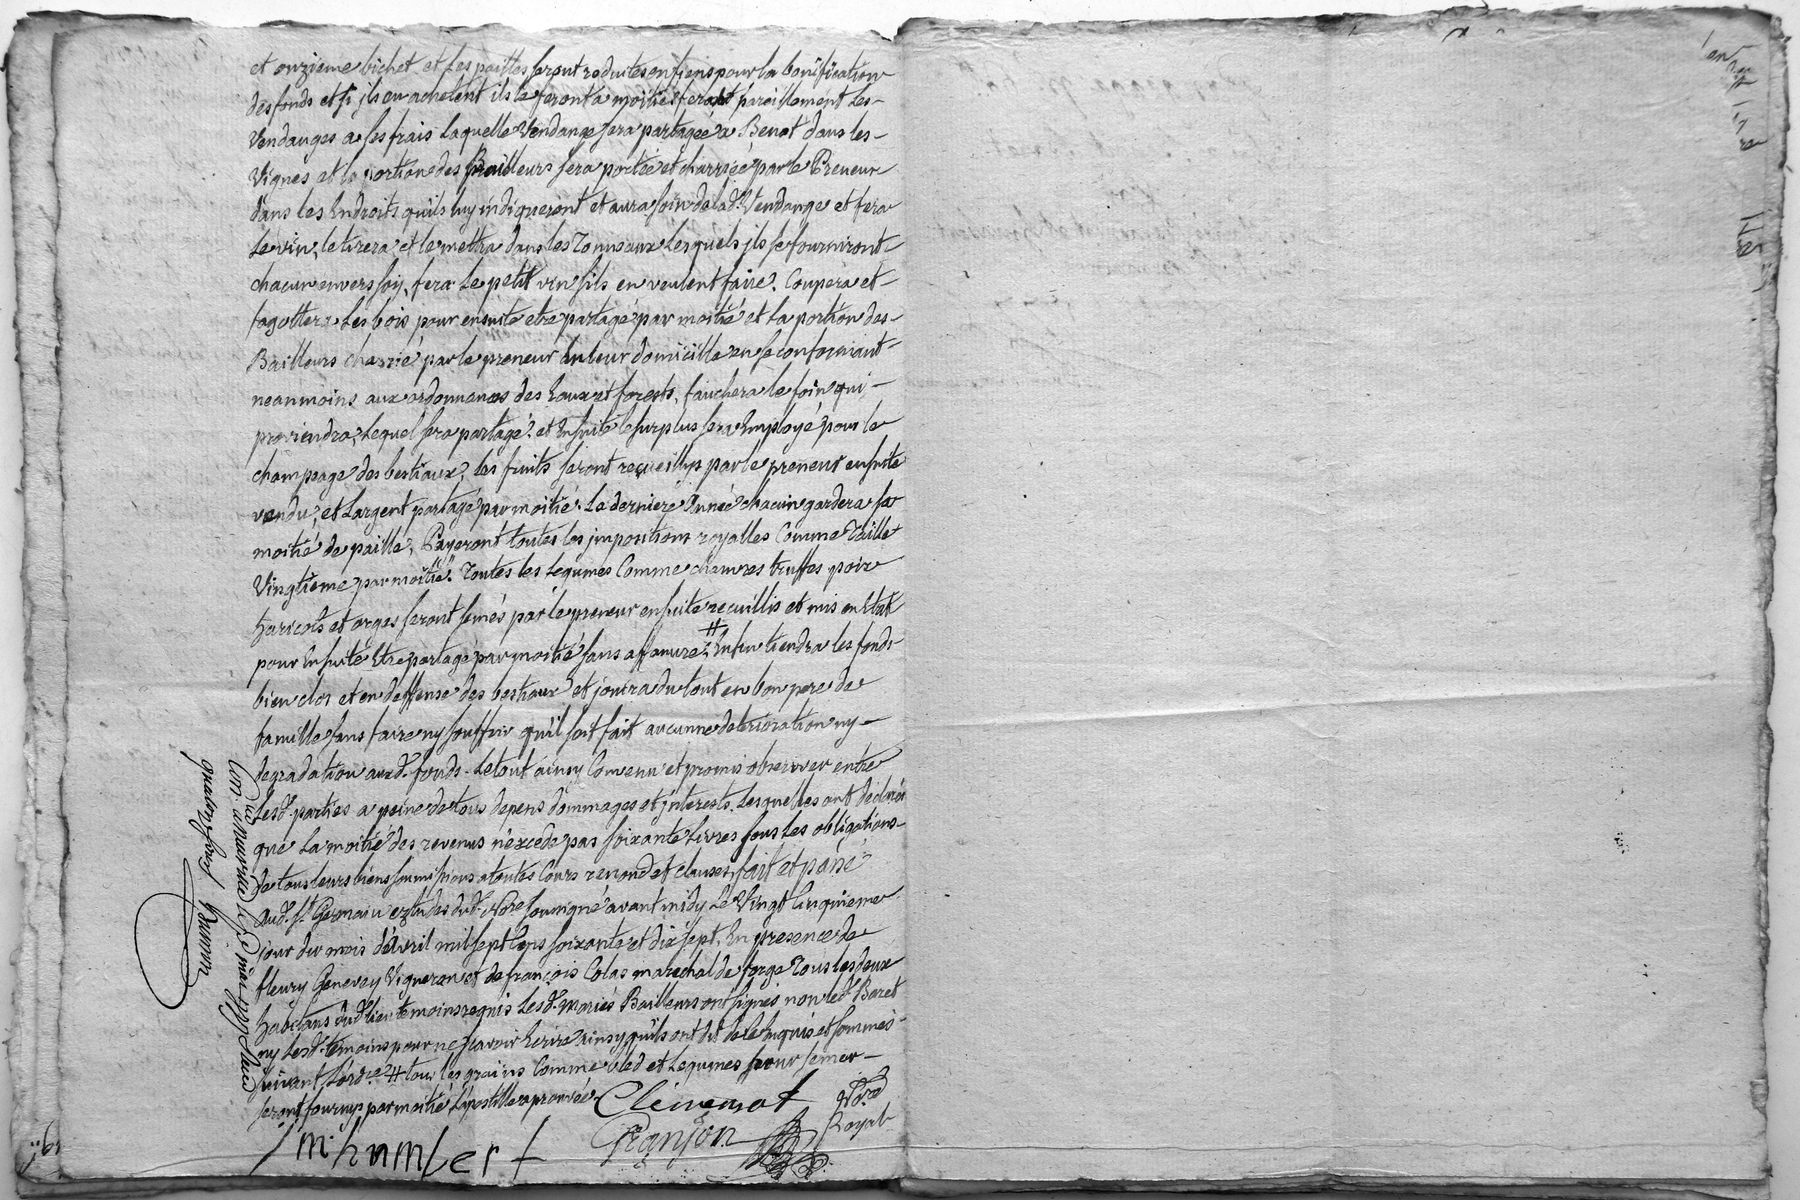 et onzieme bichet et les pailles seront reduites en fiens pour la bonification
des fonds et si jls en achetent ils le feront a moitié feront pareillement les
Vendanges a ses frais laquelle Vendange sera partagée a Benot dans les
Vignes et la portion des Bailleurs sera portée et charriée par le Preneur
dans les Endroits qu'ils luy indiqueront et aura soin de lad.e Vendange et fera
le vin, le tirera et le mettra dans les Tonneaux lesquels jls se fourniront
chacun envers soy, fera le petit vin sils en veulent faire. Coupera et
fagottera les bois pour ensuite etre partagé par moitié et la portion des
Bailleurs charrié par le preneur en leur domicille en se conformant
neanmoins aux ordonnances des Eaux et forests, fauchera le foin qui
proviendra, lequel sera partagé et Ensuite le surplus sera Employé pour le
champeage des bestiaux, les fruits seront recueillys par le preneur ensuite
vendu, et l'argent partagé par moitié. La derniere Année chacun gardera sa
moitié de paille, Payeront toutes les jmpositions royalles Comme Taille
Vingtieme par moitié. Toutes les legumes Comme chanvres truffes poix
haricots et orges seront semés par le preneur ensuite recuillis et mis en Etat
pour Ensuite Etre partagé par moitié sans affanure # Enfin tiendra les fonds
bien clos et en deffense des bestiaux et jouira du tout en bon pere de
famille sans faire ny souffrir qu'il soit fait aucunne deterioration ny
degradation auxd. fonds. Le tout ainsy Convenu et promis observer entre
lesd. parties a peine de tous depens dommages et jnterests, lesquelles ont declarés
que la moitié des revenus n'excede pas soixante livres sous les obligations
de tous leurs biens soumissions a toutes Cours renond et clauses, fait et passé
aud. St Germain Etudes dud. Nore soussigné avant midy le Vingt Cinquieme
jour du mois d'avril mil sept Cens soixante et dix sept, En presence de
fleury Genevay Vigneron et de françois Colas marechal de forge Tous les deux
habitans dud. lieu temoins requis lesd. mariés Bailleurs ont signés non led. Baret
ny lesd. temoins pour ne sçavoir Ecrire ainsy qu'ils ont dit de ce Enquis et sommés
suivant l'ord.ce # tous les grains Comme bled et legumes pour semer
seront fournys par moitié L'apostille aprouvée Clemenost
Jm humbert Granjon Nore
Royal